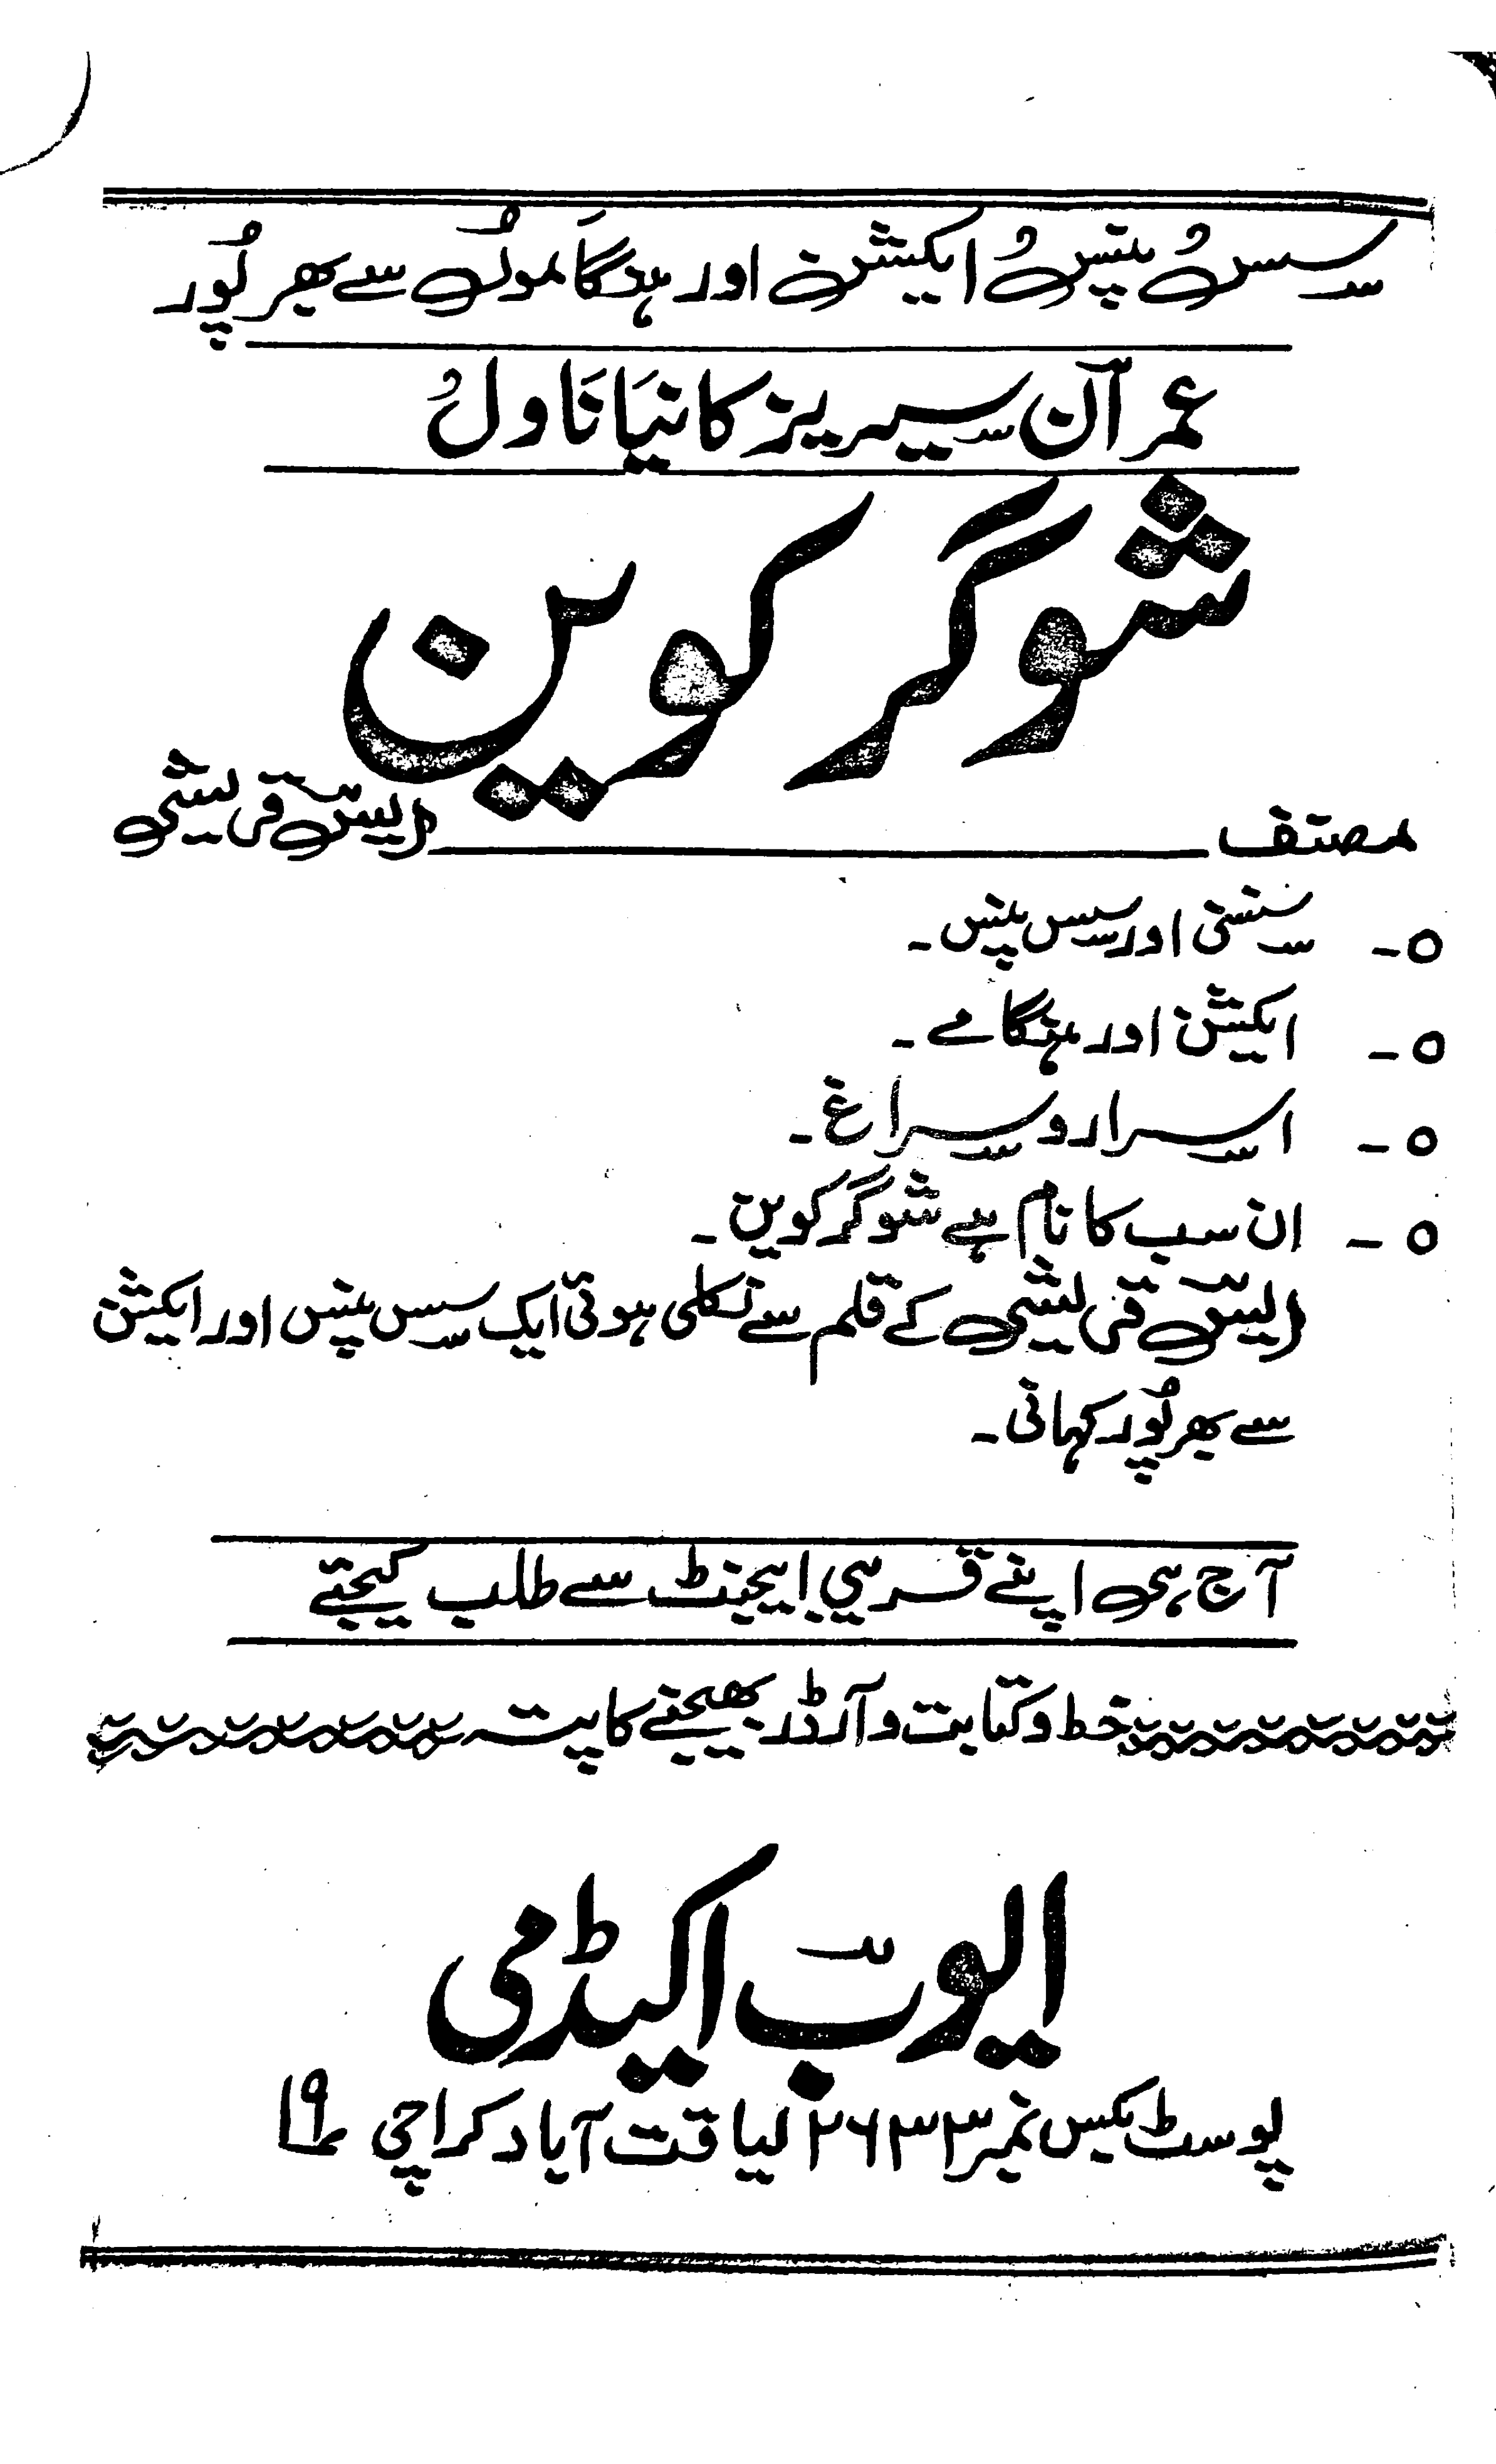 سسپنس ایکشن اور ہنگاموں سے بھرپُور
عمران سیریز کا نیا ناول
شوگر کوین
مصنف ـــــــــ ایس قریشی
۵- سنسنی اور سسپنس ۔
۵- ایکشن اور ہنگامے ۔
۵- اسرار و سراغ ۔
۵- ان سب کا نام ہے شوگر کوین ۔
ایس قریشی کے قلم سے نکلی ہوئی ایک سسپنس اور ایکشن
سے بھرپُور کہانی ۔
آج ہی اپنے قریبی ایجینٹ سے طلب کیجئے
خط و کتابت و آرڈر بھیجنے کا پتہ
ایوب اکیڈمی
پوسٹ بکس نمبر ۲۶۳۳ لیاقت آباد کراچی ۱۹